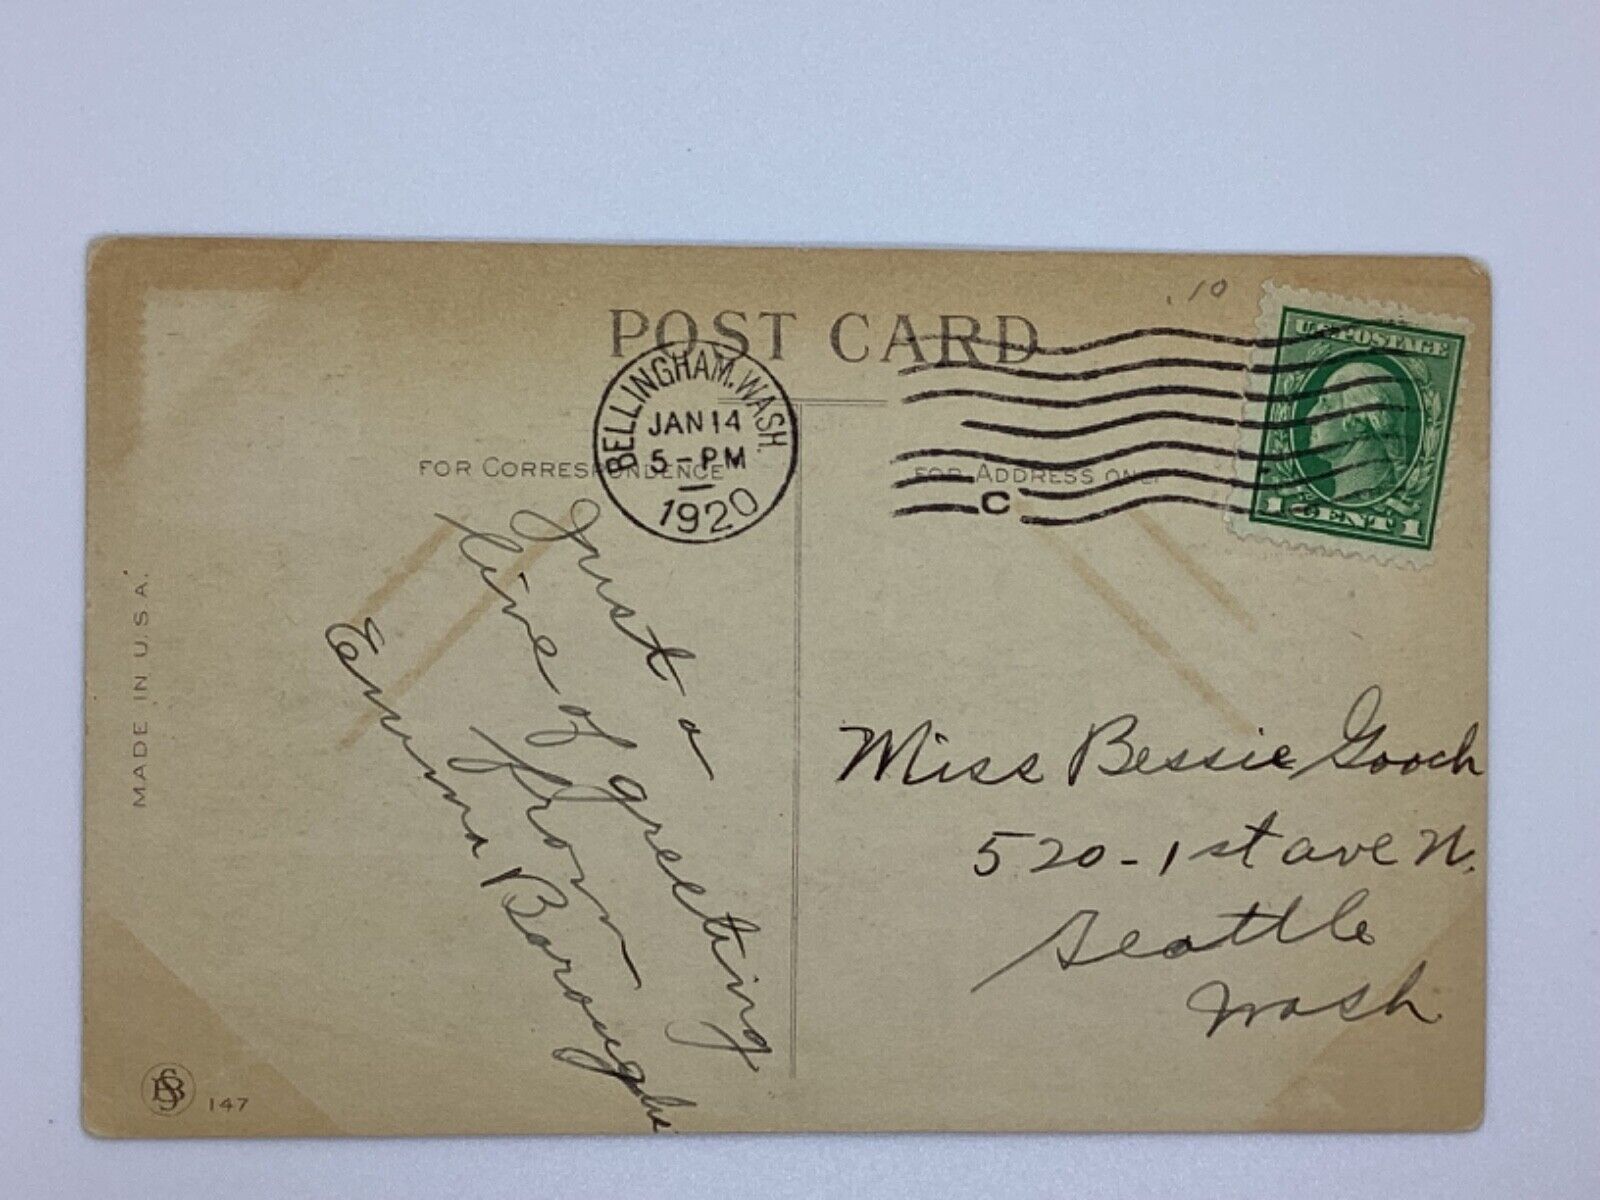 .10
POST CARD
1 U.S. POSTAGE
1 CENT 1
BELLINGHAM, WASH.
JAN 14
5-PM
1920
C
FOR CORRESPONDENCE
FOR ADDRESS ONLY
Just a
line of greeting
from
Emma
Miss Bessie Gooch
520-1st ave N.
Seattle
Wash.
MADE IN U.S.A.
147